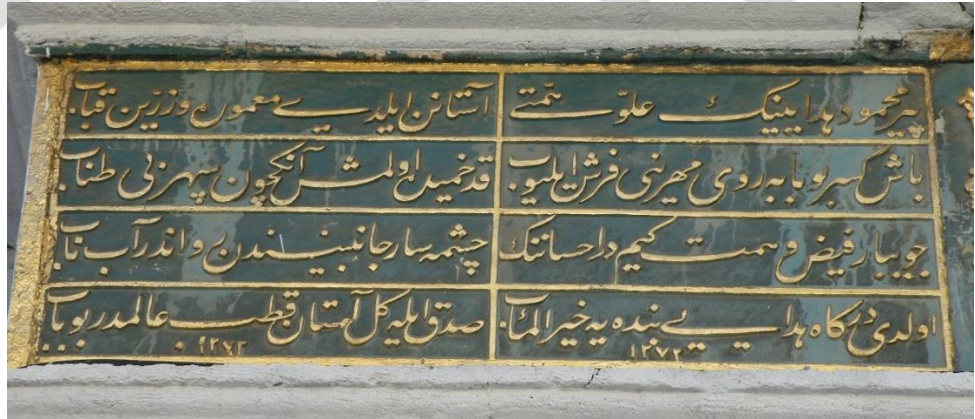 پیر محمود هدایینك علوّ همّتی آستانن ایلدی معموره و زرین قباب
باش كسر بو بابه ردی مهرنی فرش ایلیوب قد خمیده اولمش آنكچون سپهر بی طناب
جویبار فیض و همت كیم در احساننك چشمه سار جانبیندن روان در آب ناب
اولدی درگاه هدایی بنده یه خیر المآب صدق ایله كل آستان قطب عالمدر بو باب
١٢٧٢ ١٢٧٢